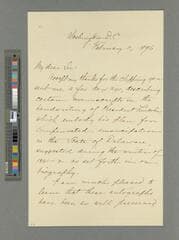 Washington, D.C.
February 9, 1896
My dear Sir:
Accept my thanks for the clipping you
sent me a few days ago, describing
certain manuscripts in the
handwriting of President Lincoln
which embody his plan for
compensated emancipation
in the State of Delaware
suggested during the winter of
as set forth in our
biography.
I am much pleased to
learn that these autographs
have been so well preserved